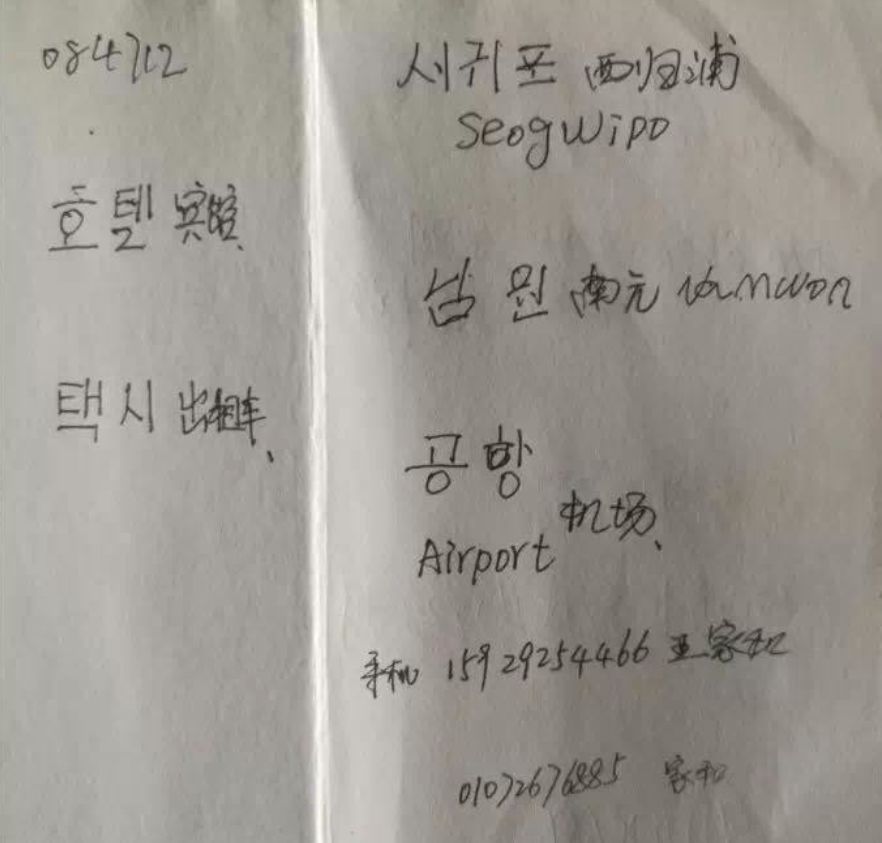 084712
호텔 宾馆、
택시 出租车、
서귀포 西归浦
Seogwipo
남원 南元 Namwon
공항
机场、
Airport
手机 15929254466 王家和
01072676885 家和